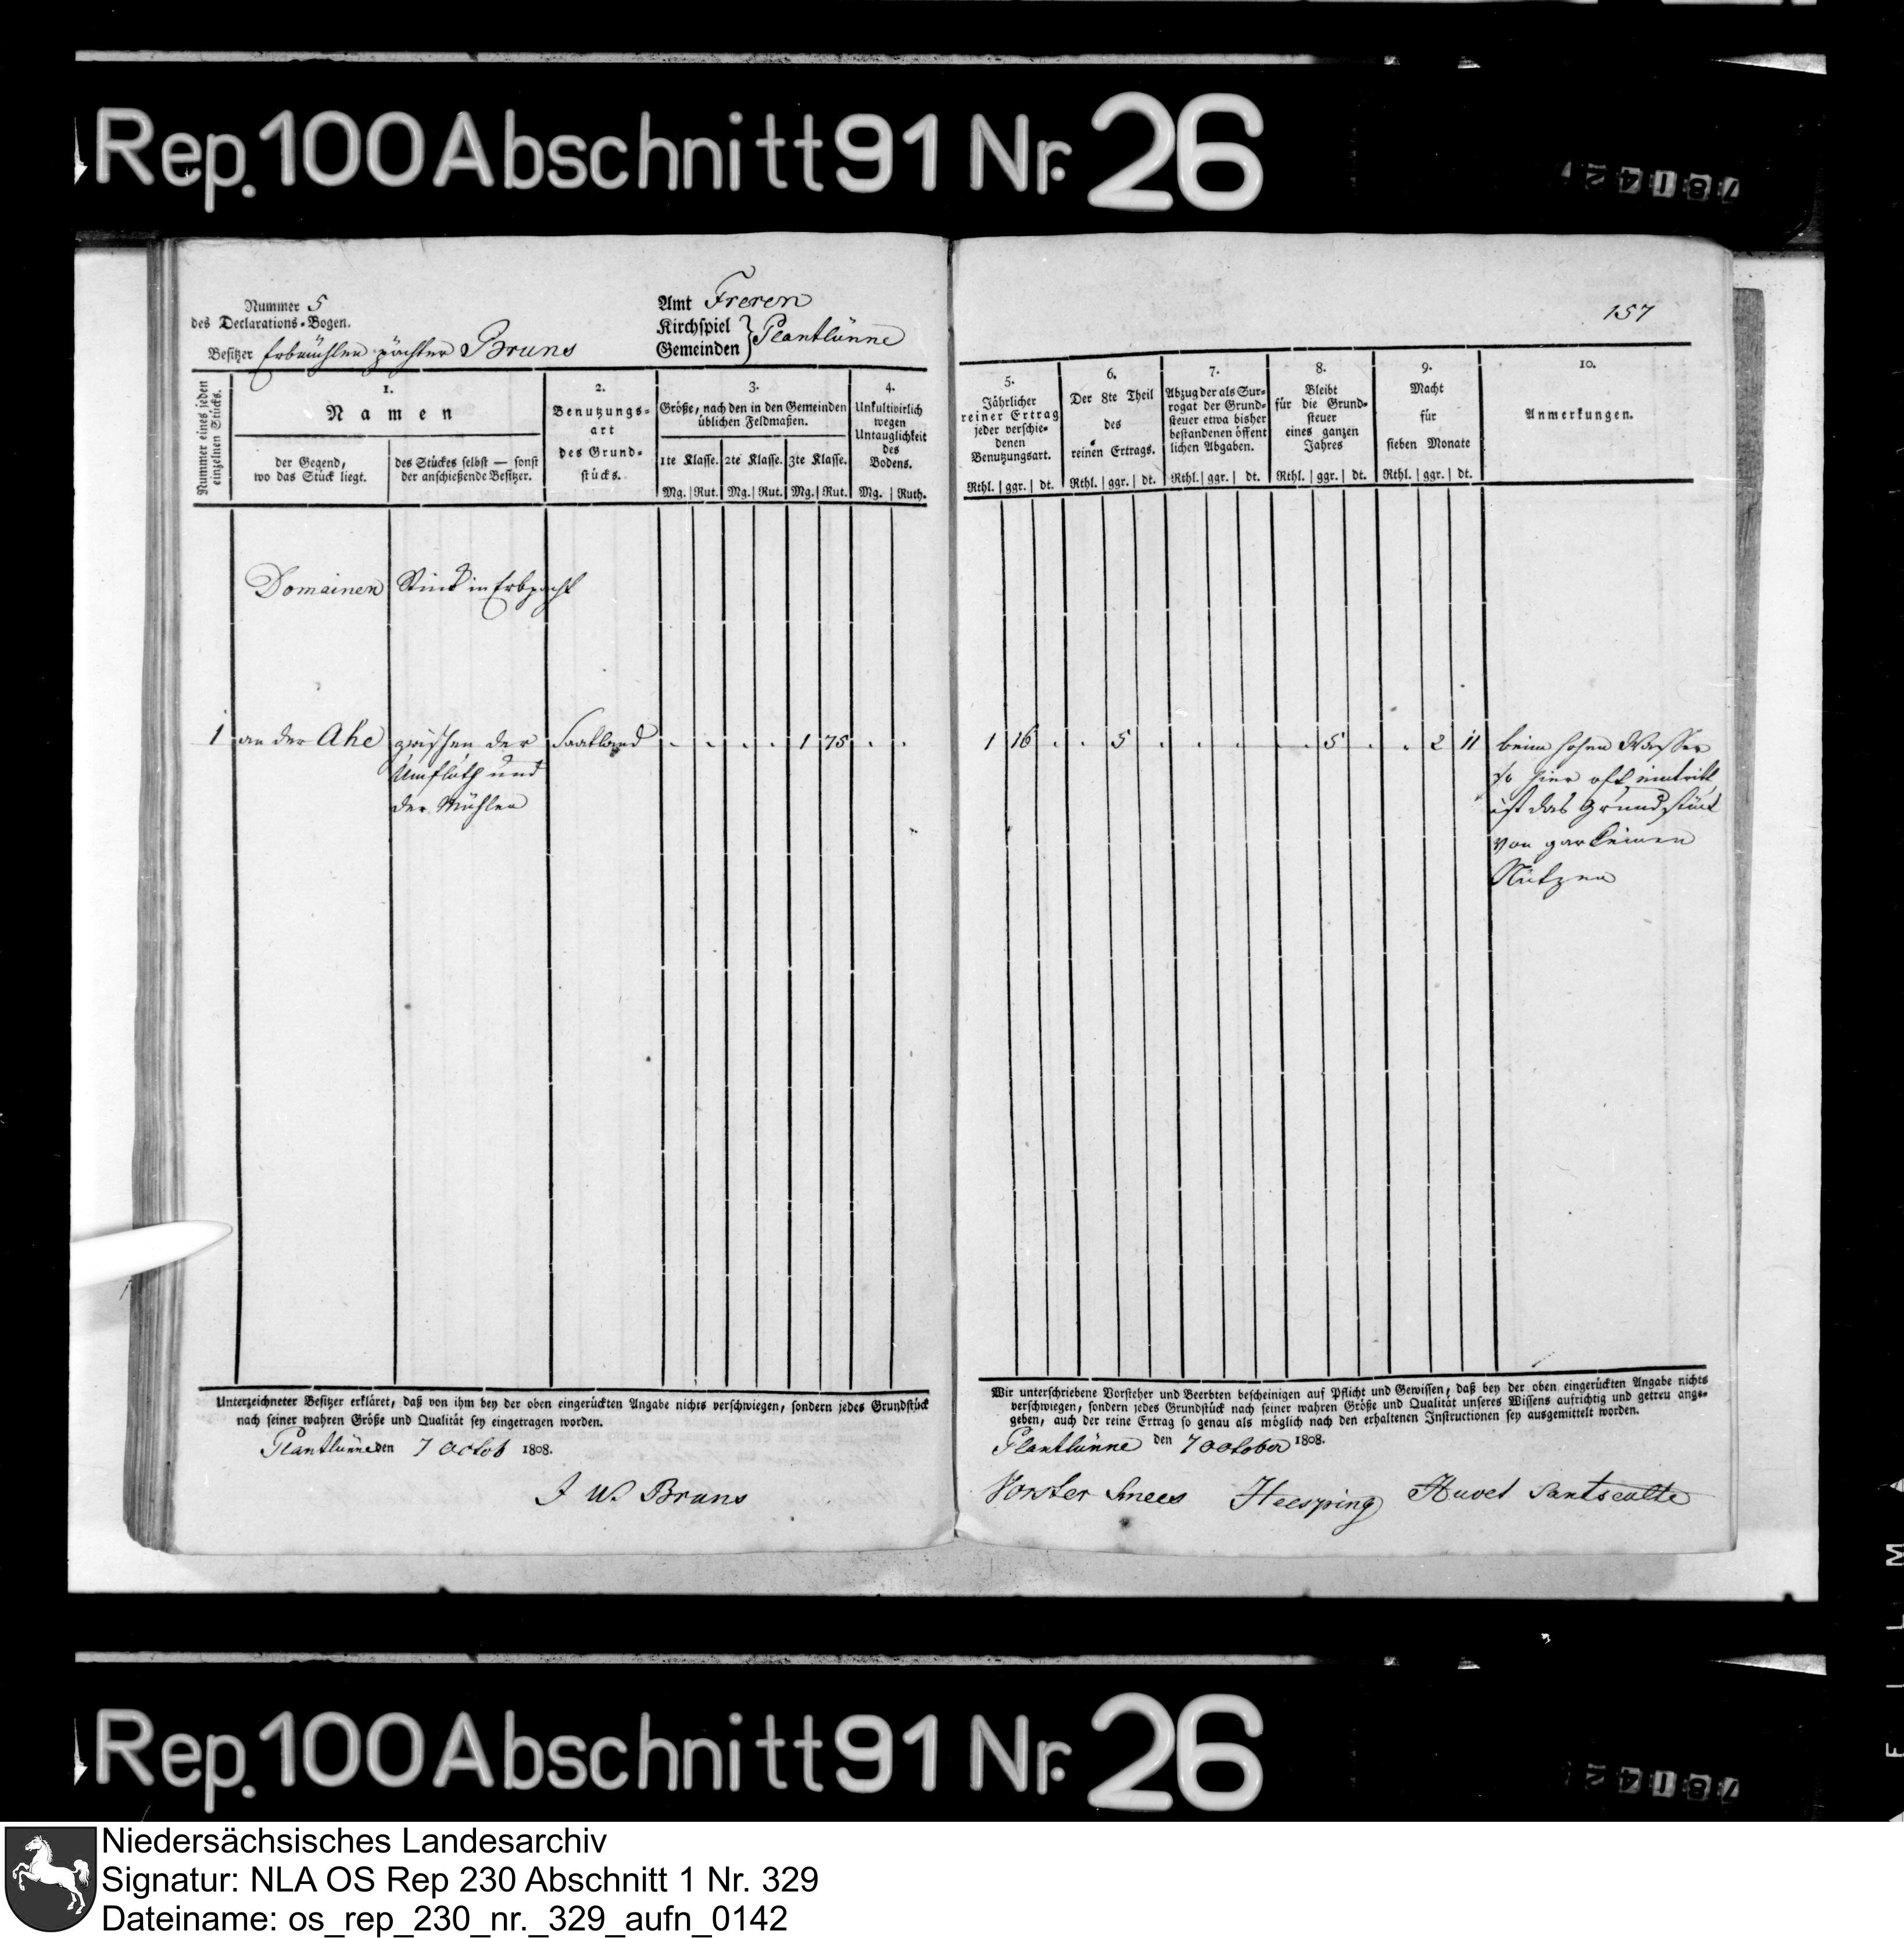 Rep. 100 Abschnitt 91 Nr. 26
78142
Nummer 5
des Declarations-Bogen.
Besitzer Erbmühlen pächter Bruns
Amt Freren
Kirchspiel
Gemeinden } Plantlünne
157
Nummer eines jeden einzelnen Stücks.
1.
Namen
der Gegend, wo das Stück liegt.
des Stückes selbst — sonst der anschießende Besitzer.
2.
Benutzungs-
art
des Grund-
stücks.
3.
Größe, nach den in den Gemeinden
üblichen Feldmaßen.
1te Klasse. 2te Klasse. 3te Klasse.
Mg. Rut. Mg. Rut. Mg. Rut.
4.
Unkultivirlich
wegen
Untauglichkeit
des
Bodens.
Mg. Ruth.
5.
Jährlicher
reiner Ertrag
jeder verschie-
denen
Benutzungsart.
Rthl. ggr. dt.
6.
Der 8te Theil
des
reinen Ertrags.
Rthl. ggr. dt.
7.
Abzug der als Sur-
rogat der Grund-
steuer etwa bisher
bestandenen öffent
lichen Abgaben.
Rthl. ggr. dt.
8.
Bleibt
für die Grund-
steuer
eines ganzen
Jahres
Rthl. ggr. dt.
9.
Macht
für
sieben Monate
Rthl. ggr. dt.
10.
Anmerkungen.
Domainen Stück in Erbpacht
1 an der Ahe zwischen der Saatland . . . . 1 75 . . 1 16 . . 5 . . . . . 5 . . 2 11 beim hohen Wasser
Umfluth und
der Mühlen
so hier oft eintritt
ist das Grundstück
von gar keinen
Nützen
Unterzeichneter Besitzer erkläret, daß von ihm bey der oben eingerückten Angabe nichts verschwiegen, sondern jedes Grundstück
nach seiner wahren Größe und Qualität sey eingetragen worden.
Plantlünne den 7 Octob 1808.
J W. Bruns
Wir unterschriebene Vorsteher und Beerbten bescheinigen auf Pflicht und Gewissen, daß bey der oben eingerückten Angabe nichts
verschwiegen, sondern jedes Grundstück nach seiner wahren Größe und Qualität unseres Wissens aufrichtig und getreu ange-
geben, auch der reine Ertrag so genau als möglich nach den erhaltenen Instructionen sey ausgemittelt worden.
Plantlünne den 7 October 1808.
Vorster Heesping
FILM
Rep. 100 Abschnitt 91 Nr. 26
78142
Niedersächsisches Landesarchiv
Signatur: NLA OS Rep 230 Abschnitt 1 Nr. 329
Dateiname: os_rep_230_nr._329_aufn_0142